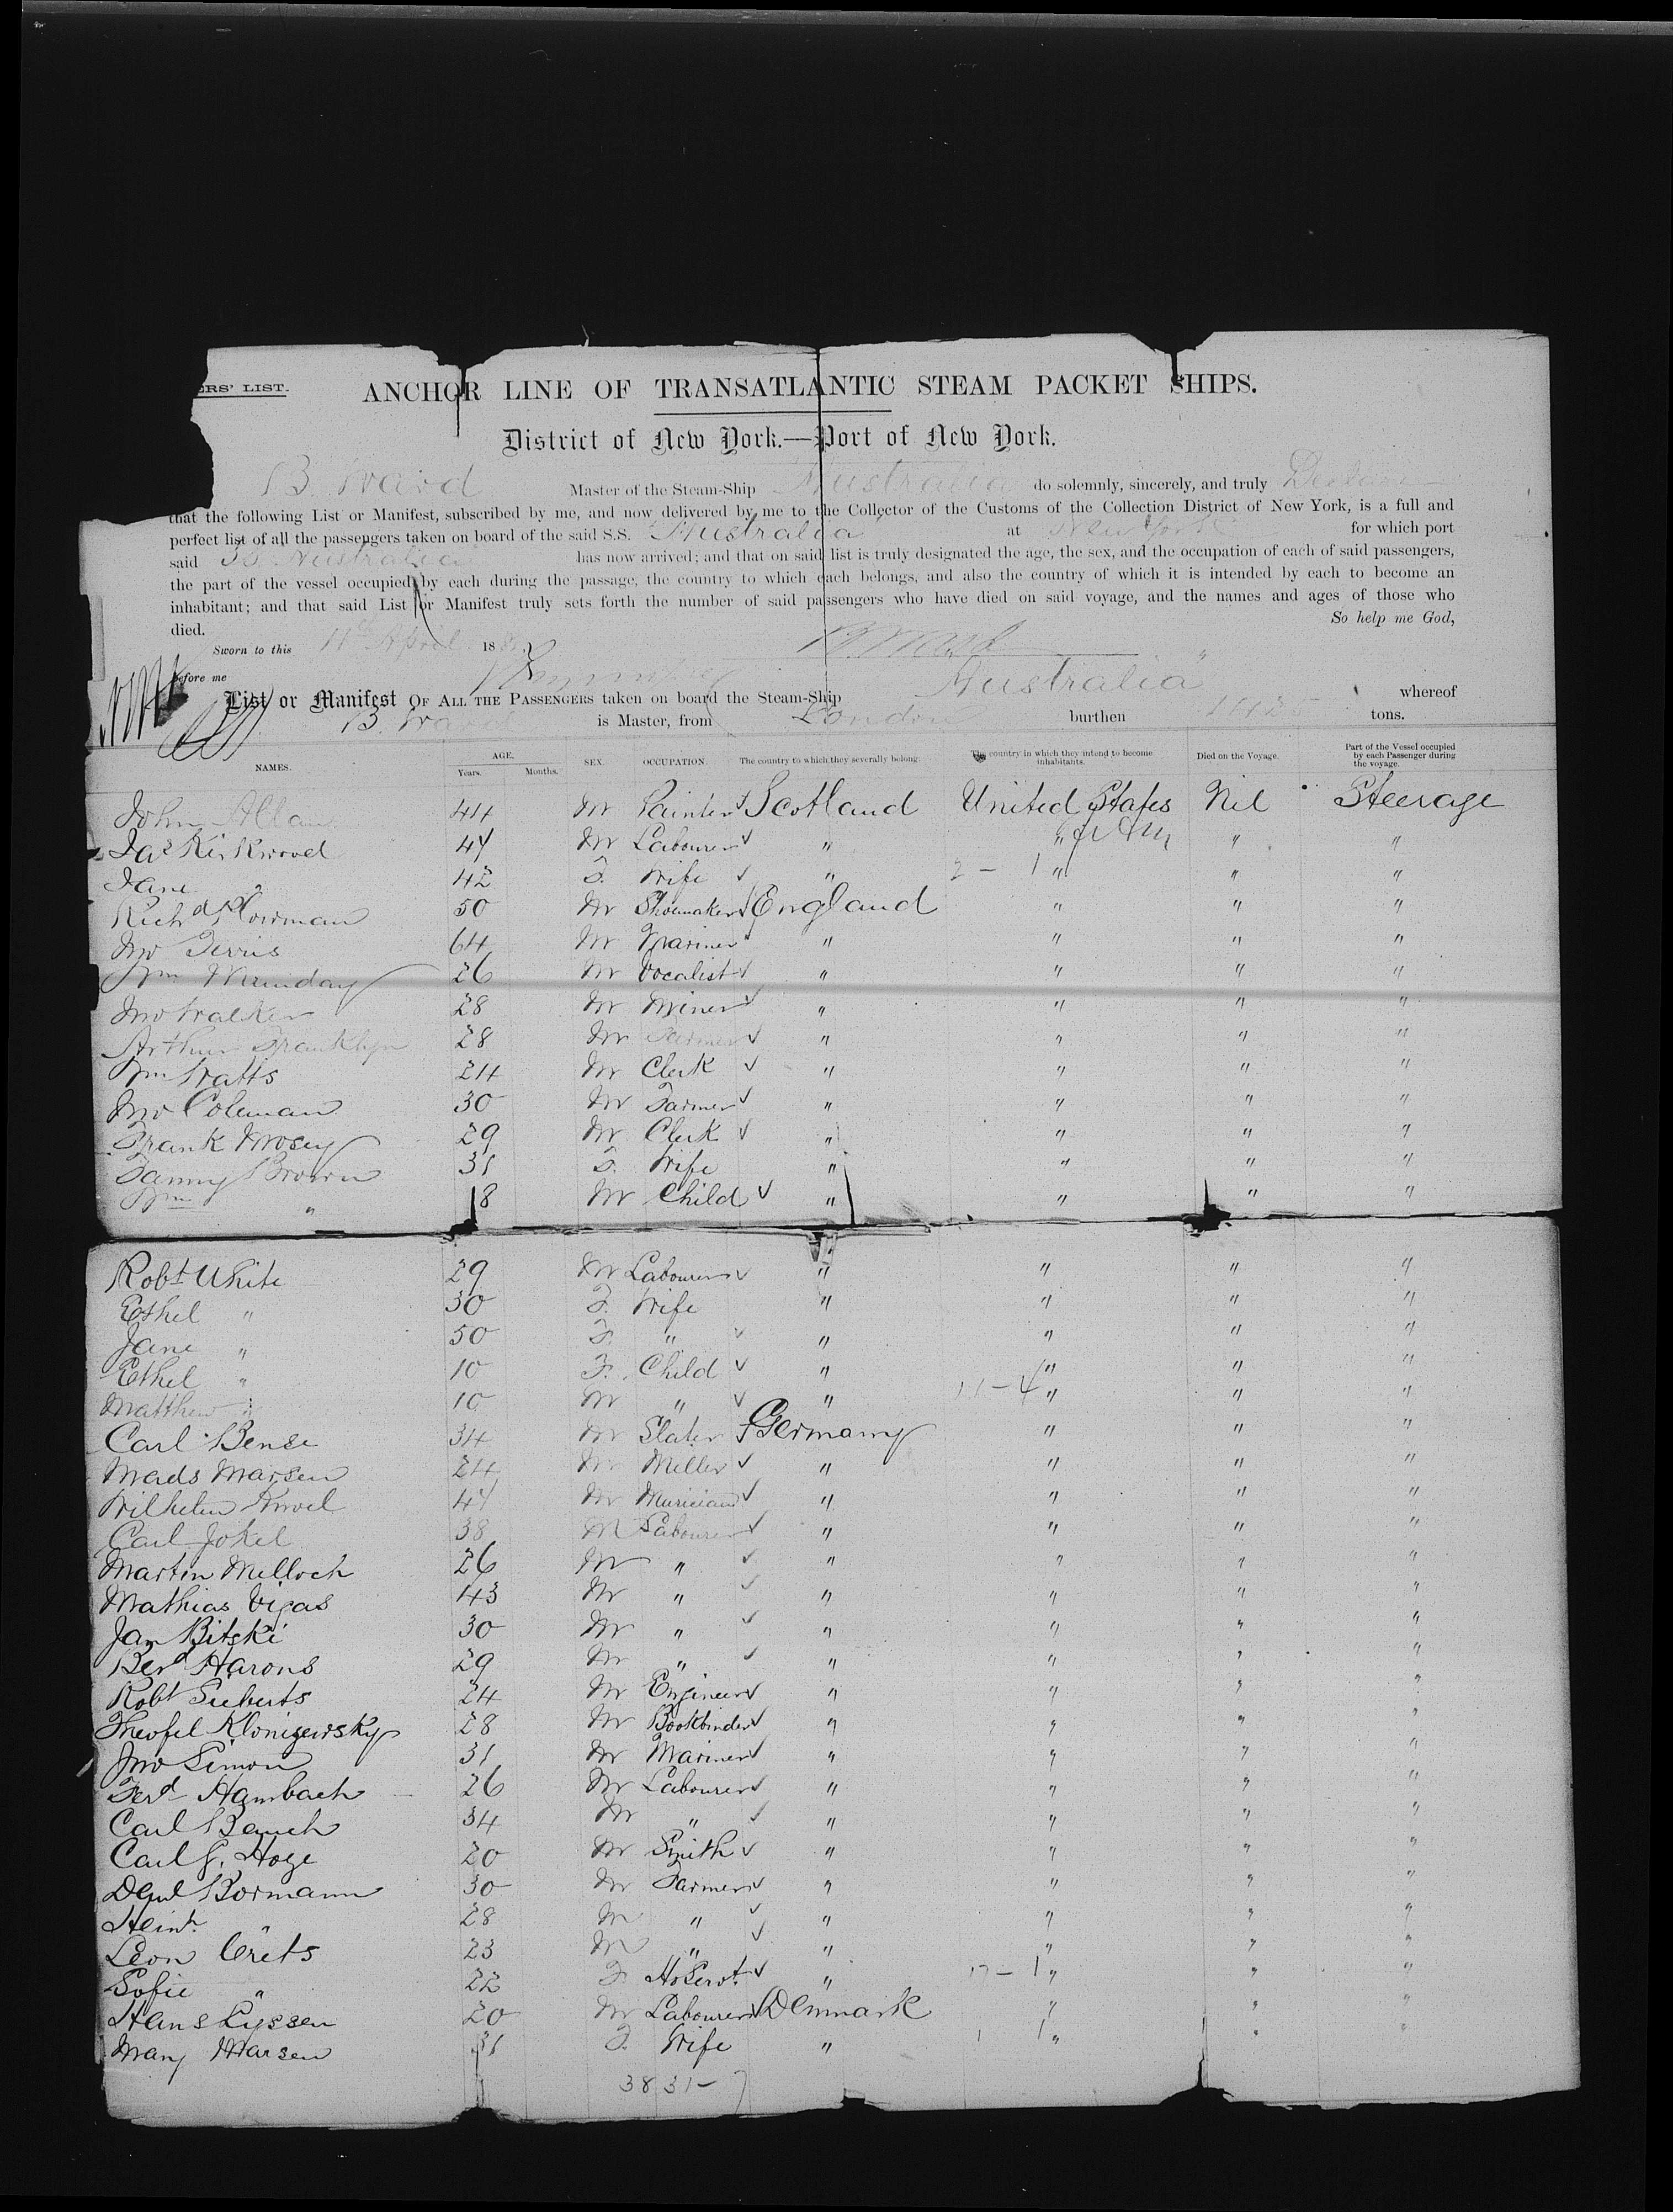 ERS' LIST.
ANCHOR LINE OF TRANSATLANTIC STEAM PACKET SHIPS.
District of New York.—Port of New York.
B. Ward Master of the Steam-Ship Australia do solemnly, sincerely, and truly
that the following List or Manifest, subscribed by me, and now delivered by me to the Collector of the Customs of the Collection District of New York, is a full and
perfect list of all the passengers taken on board of the said S.S. Australia at New York for which port
said SS Australia has now arrived; and that on said list is truly designated the age, the sex, and the occupation of each of said passengers,
the part of the vessel occupied by each during the passage, the country to which each belongs, and also the country of which it is intended by each to become an
inhabitant; and that said List or Manifest truly sets forth the number of said passengers who have died on said voyage, and the names and ages of those who
died. So help me God,
Sworn to this 11th April 188 B. Ward
before me
List or Manifest OF ALL THE PASSENGERS taken on board the Steam-Ship Australia" whereof
B. Ward is Master, from London burthen tons.
NAMES. AGE. Years. Months. SEX. OCCUPATION. The country to which they severally belong. The country in which they intend to become inhabitants. Died on the Voyage. Part of the Vessel occupied by each Passenger during the voyage.
John Allan 44 M Painter Scotland United States Nil Steerage
Jas Kirkwood 47 M Labourer " " " "
Jane " 42 F. Wife " 2 - 1 " " "
Richd Plowman 50 M Shoemaker England " " "
Jno 64 M Mariner " " " "
Wm 26 M Vocalist " " " "
Jno Walker 28 M Miner " " " "
Arthur Franklyn 28 M Farmer " " " "
Wm Watts 24 M Clerk " " " "
Jno Coleman 30 M Farmer " " " "
Frank Mosey 29 M Clerk " " " "
Fanny Brown 31 F. Wife " " " "
Wm " 8 M Child " " " "
Robt White 29 M Labourer " " " "
Ethel " 30 F. Wife " " " "
Jane " 50 F. " " " " "
Ethel " 10 F. Child " " " "
Matthew " 10 M " " 11 - 4 " " "
Carl Bense 34 M Slater Germany " " "
Mads Marsen 24 M Miller " " " "
Wilhelm 47 M Musician " " " "
Carl Jokel 38 M Labourer " " " "
Martin Melloch 26 M " " " " "
Mathias Vigas 43 M " " " " "
Jan Bitski 30 M " " " " "
Berd Harons 29 M " " " " "
Robt Sieberts 24 M Engineer " " " "
Theofel Klonizewsky 28 M Bookbinder " " " "
Jno Simon 31 M Mariner " " " "
Ferd Hambach 26 M Labourer " " " "
Carl Bauch 34 M " " " " "
Carl G. Hoge 20 M Smith " " " "
Bormann 30 M Farmer " " " "
Heinh " 28 M " " " " "
Leon Crets 23 M " " " " "
Sofie " 22 F. Ho Servt. " 17 - 1 " " "
Hans Lyssen 20 M Labourer Denmark " " "
Mary Marsen 31 F. Wife " 1 1 " " "
38 31 - 7